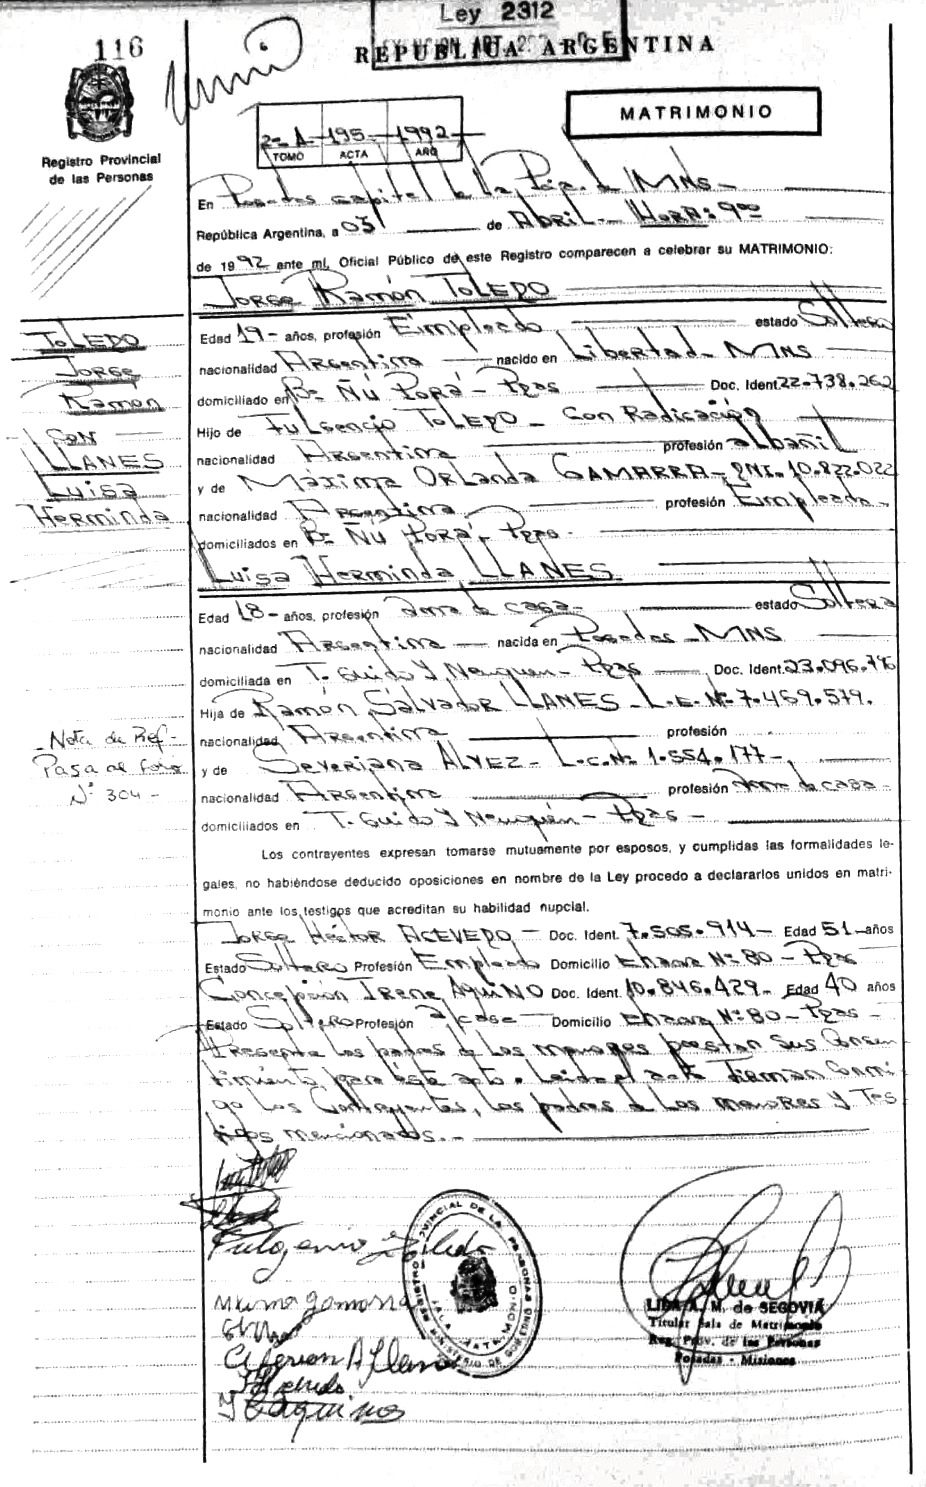 Ley 2312
116
REPUBLICA ARGENTINA
MATRIMONIO
2-A 195 1992
TOMO ACTA AÑO
Registro Provincial
de las Personas
En Posadas capital de la Pcia. de MNS-
República Argentina, a 03 de Abril- Hora: 9 00
de 1992 ante mí, Oficial Público de este Registro comparecen a celebrar su MATRIMONIO:
Jorge Ramón TOLEDO
TOLEDO
Jorge
Ramon
con
LLANES
Luisa
Herminda
Edad 19- años, profesión Empleado estado Soltero
nacionalidad Argentina nacido en Libertad- MNS
domiciliado en Bº Ñú Porá- Pzas Doc. Ident. 22.738.262
Hijo de Fulgencio TOLEDO- Con Radicación
nacionalidad Argentina profesión albañil
y de Máxima Orlanda GAMARRA- DNI. 10.822.022
nacionalidad Argentina profesión Empleada-
domiciliados en Bº Ñú Porá- Pzas-
Luisa Herminda LLANES
Edad 18- años, profesión ama de casa- estado Soltera
nacionalidad Argentina nacida en Posadas- MNS
domiciliada en T. Guido y Neuquén- Pzas Doc. Ident. 23.096.
Hija de Ramón Salvador LLANES- L.E. Nº 7.469.579.
nacionalidad Argentina profesión
y de Severiana ALVEZ- L.C. Nº 1.554.177-
nacionalidad Argentina profesión ama de casa-
domiciliados en T. Guido y Neuquén- Pzas-
-Nota de Ref-
Pasa al folio
Nº 304-
Los contrayentes expresan tomarse mutuamente por esposos, y cumplidas las formalidades le-
gales, no habiéndose deducido oposiciones en nombre de la Ley procedo a declararlos unidos en matri-
monio ante los testigos que acreditan su habilidad nupcial.
Jorge Héctor ACEVEDO- Doc. Ident. 7.505.914- Edad 51 años
Estado Soltero Profesión Empleado Domicilio Chacra Nº 80- Pzas
Concepción Irene AQUINO Doc. Ident. 10.846.429- Edad 40 años
Estado Soltero Profesión a/casa- Domicilio Chacra Nº 80- Pzas-
Presente los padres de los menores prestan sus consen-
timiento para éste acto. Leida el acta firman conmi-
go los contrayentes, los padres de los menores y Tes
tigos mencionados.-
Fulogenio Toledo
REGISTRO PROVINCIAL DE LAS PERSONAS
MINISTERIO DE GOBIERNO
SALA MATRIMONIO
LIDA A. M. de SEGOVIA
Titular Sala de Matrimonio
Reg. Prov. de las Personas
Posadas - Misiones